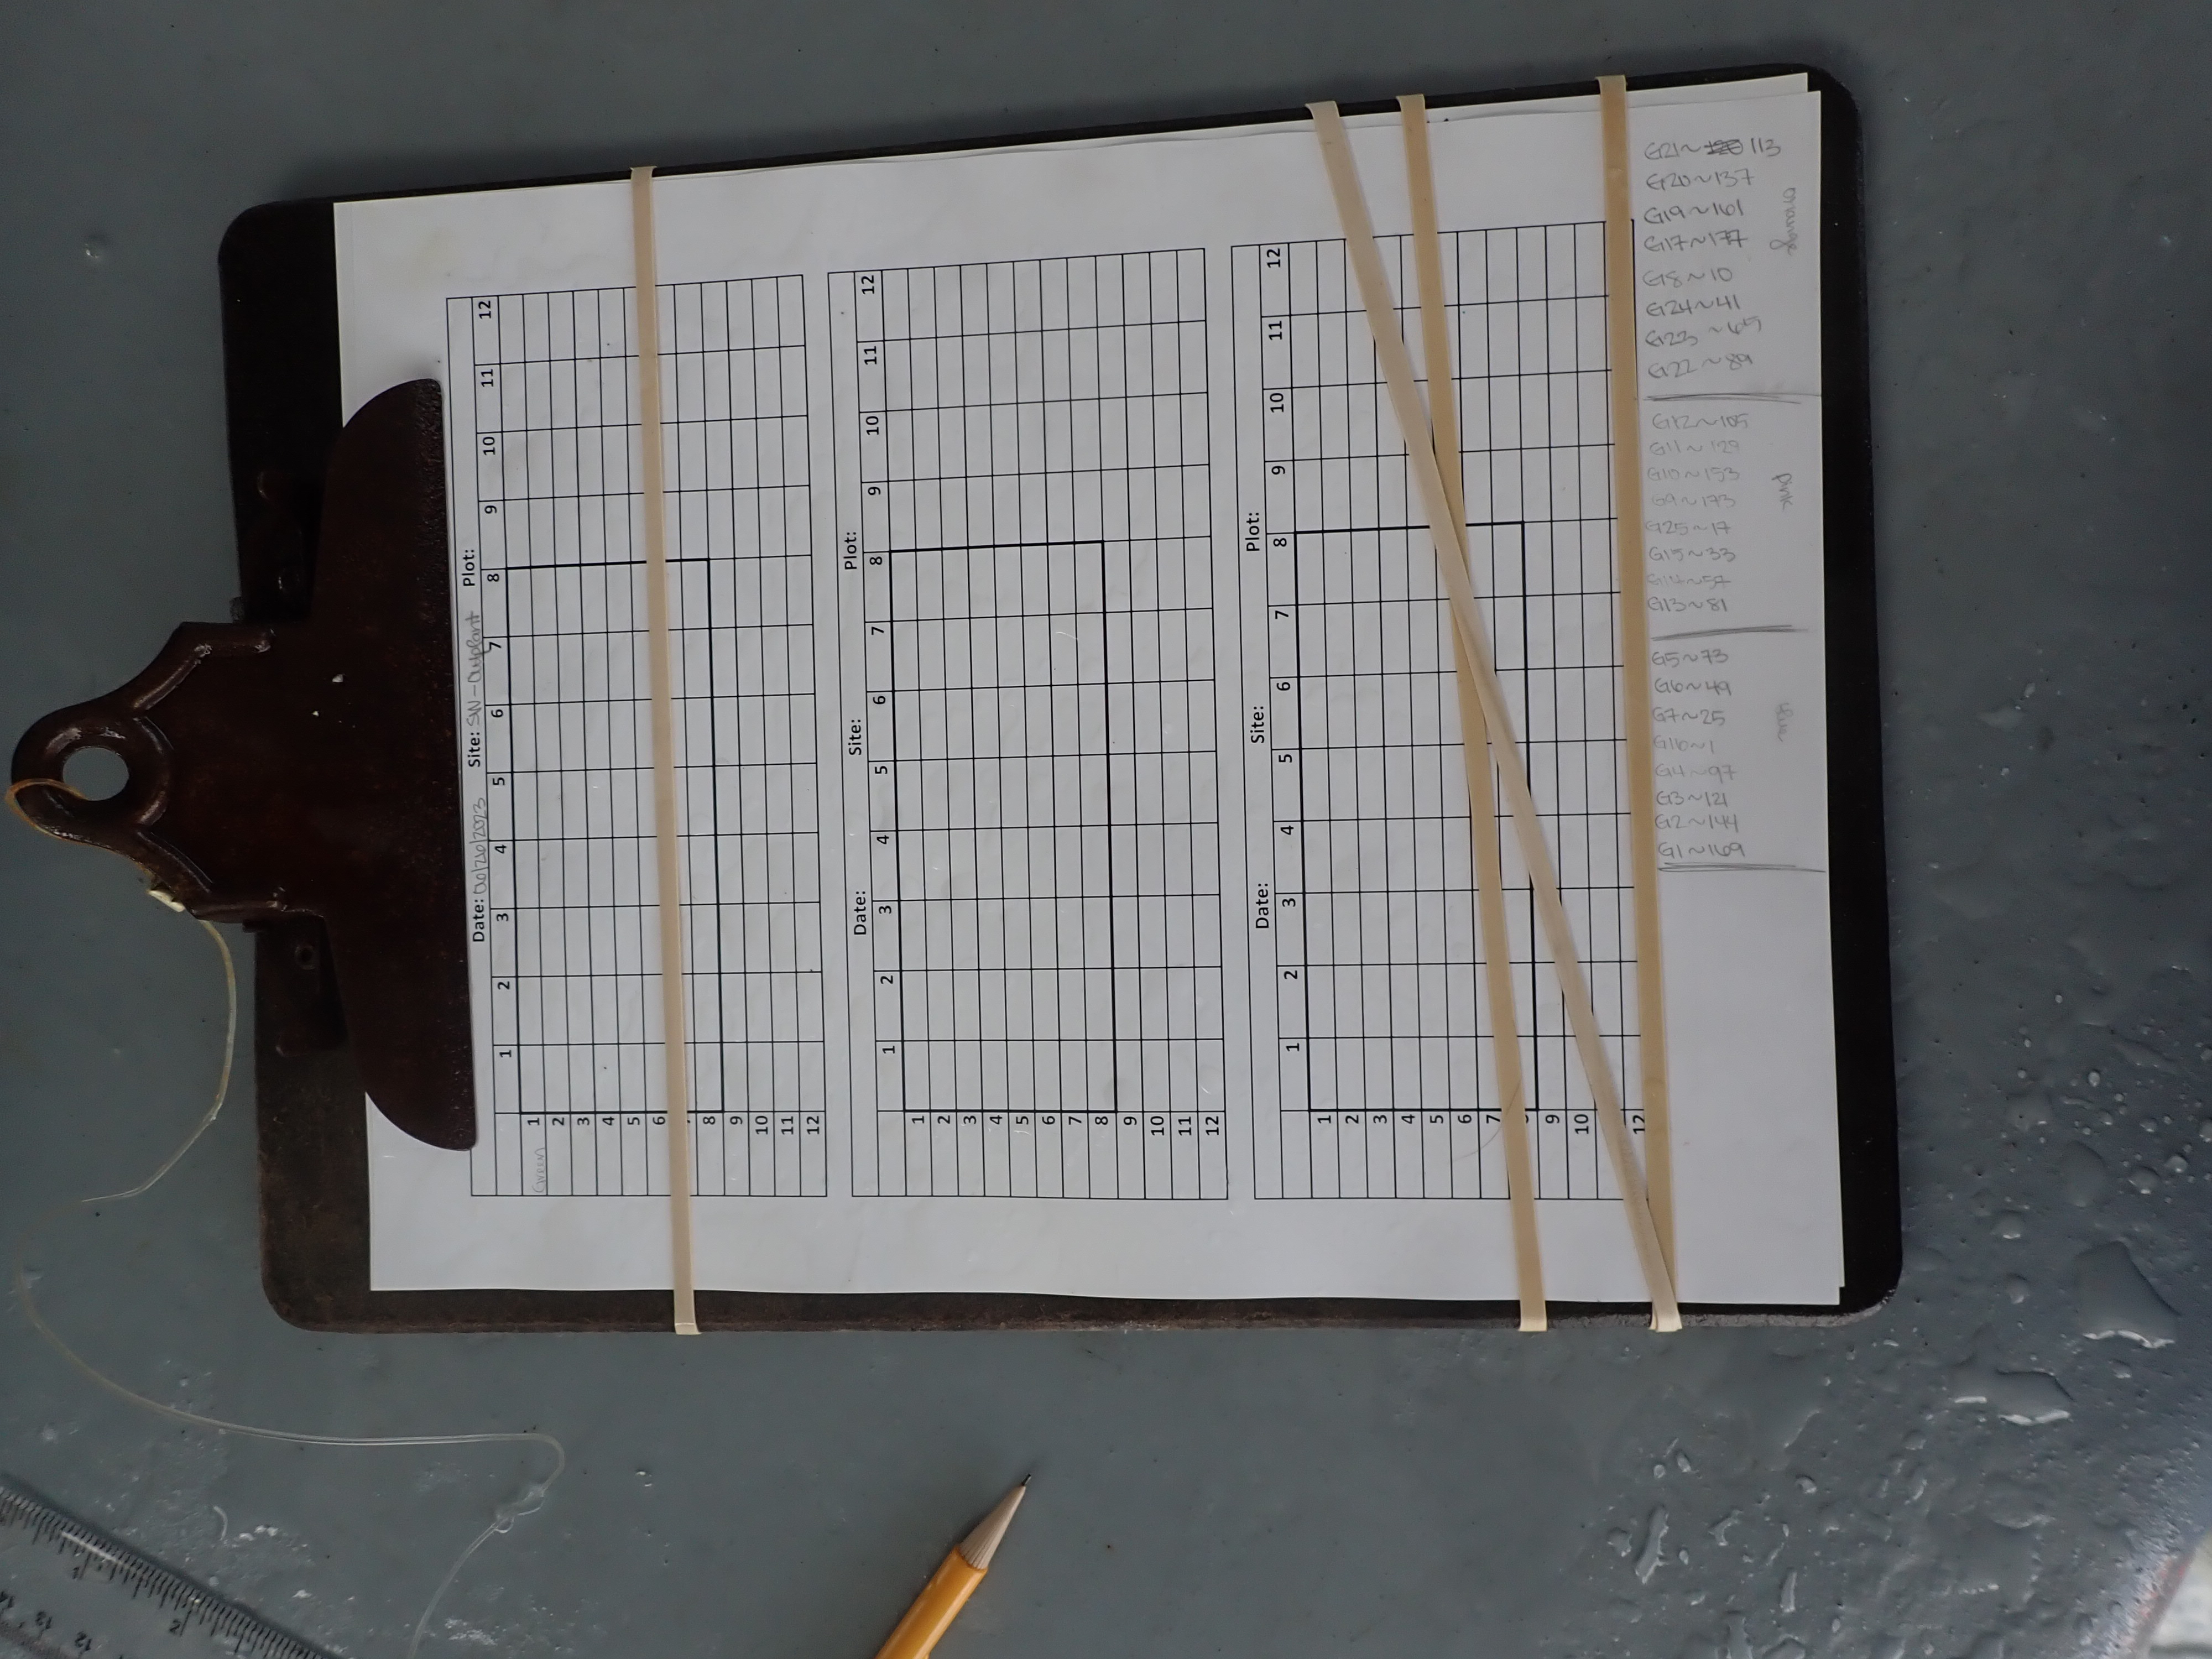 Date: 06/26/2023 Site: SW-Outplant Plot:
1 2 3 4 5 6 7 8 9 10 11 12
Green 1
2
3
4
5
6
8
9
10
11
12
Date: Site: Plot:
1 2 3 4 5 6 7 8 9 10 11 12
1
2
3
4
5
6
7
8
9
10
11
12
Date: Site: Plot:
1 2 3 4 5 6 7 8 9 10 11 12
1
2
3
4
5
6
7
9
10
12
G21~ 113
G20~137
G19~161
G17~177
G8~10
G24~41
G23~65
G22~89
orange
G12~105
G11~129
G10~153
G9~173
G25~17
G15~33
G14~57
G13~81
pink
G5~73
G6~49
G7~25
G16~1
G4~97
G3~121
G2~144
G1~169